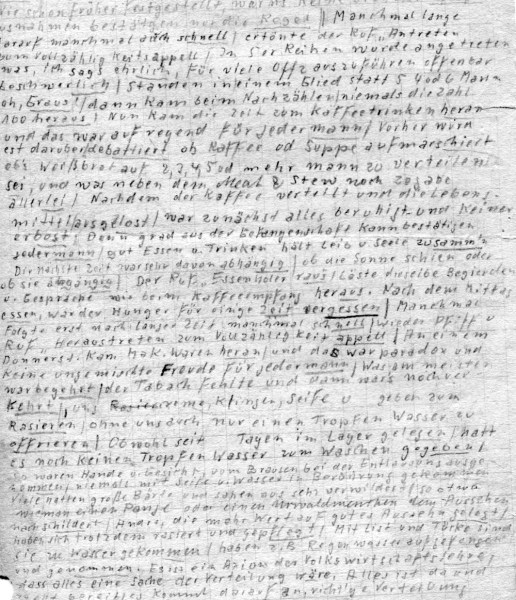 wie schon früher festgestellt, war als
usnahmen bestätgen nur die Regel / Manchmal lange
darauf manchmal auch schnell / ertönte der Ruf „Antreten
zum vollzählig Keitsappell / In 5er Reihen wurde angetreten
was, Ich sags ehrlich, für viele Offz auszuführen offenbar
beschwerlich / Standen in einem Glied statt 5 4 od 6 Mann
oh, Graus! / dann Kam beim Nachzählen / niemals die zahl
100 heraus / Nun Kam die Zeit zum Kaffeetrinken heran
und das war aufregend für Jedermann / Vorher wurd
est darüber debattiert ob Kaffee od Suppe aufmarschiert
ob's Weißbrot auf 2, 3, 4, 5 od mehr mann zu verteilen
sei, und was neben dem Meat & Stew noch Zugabe
allerlei / Nachdem der Kaffee verteilt und die Lebens-
mittel ausgelost / war zunächst alles beruhigt und Keiner
erbost, Denn grad aus der Gefangenschaft Kann bestätigen
Jedermann / gut Essen u Trinken hält Leib u Seele zusamm'n
Die Nächste Zeit war sehr davon abhängig / ob die Sonne schien oder
ob sie abgängig / Der Ruf „Essenholer raus / Löste dieselbe Begierden
u Gespräche wie beim Kaffeeempfang heraus. Nach dem Mittag
essen, war der Hunger für einge Zeit vergessen / Manchmal
folgte erst nach langer Zeit, manchmal schnell / wieder Pfiff u
Ruf „Heraustreten zum Vollzählig Keit appell / An einem
Donnersd. Kam Mak. Waren heran / und das war paradox und
Keine ungemischte Freude für Jedermann / Was am meisten
war begehrt / der Tabach fehlte und dann wars noch ver
Kehrt /, uns Rasiercreme, Klingen, Seife u geben zum
Rasieren / ohne uns auch nur einen Tropfen Wasser zu
offrieren / Obwohl seit Tagen im Lager gelesen / hatt
es noch keinen Tropfen Wasser zum Waschen gegeben /
So waren Hände u Gesicht, vom Brausen bei der Entlausung ausge
nommen, niemals mit Seife u Wasser in Berührung gekommen
Viele hatten große Bärte und sahen aus sehr verwildert / so etwa
wie man einen Panje oder einen Urwaldmenschen dem Aussehen
nach schildert / Andre, die mehr Wert auf gutes Aussehn gelegt /
haben sich trotzdem rasiert und gepflegt / Mit List und Tücke sind
sie zu Wasser gekommen / haben z.B. Regenwasser aufgefangen
und genommen. Es ist ein Axiom der Volkswirtschaftslehre,
dass alles eine Sache der Verteilung wäre. Alles ist da und
Kommt darauf an, richt'ge Verteilung